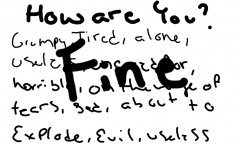 How are You?
Grumpy Tired, alone,
Fine
horrible, on the verge of
tears, Sad, about to
Explode, Evil, useless